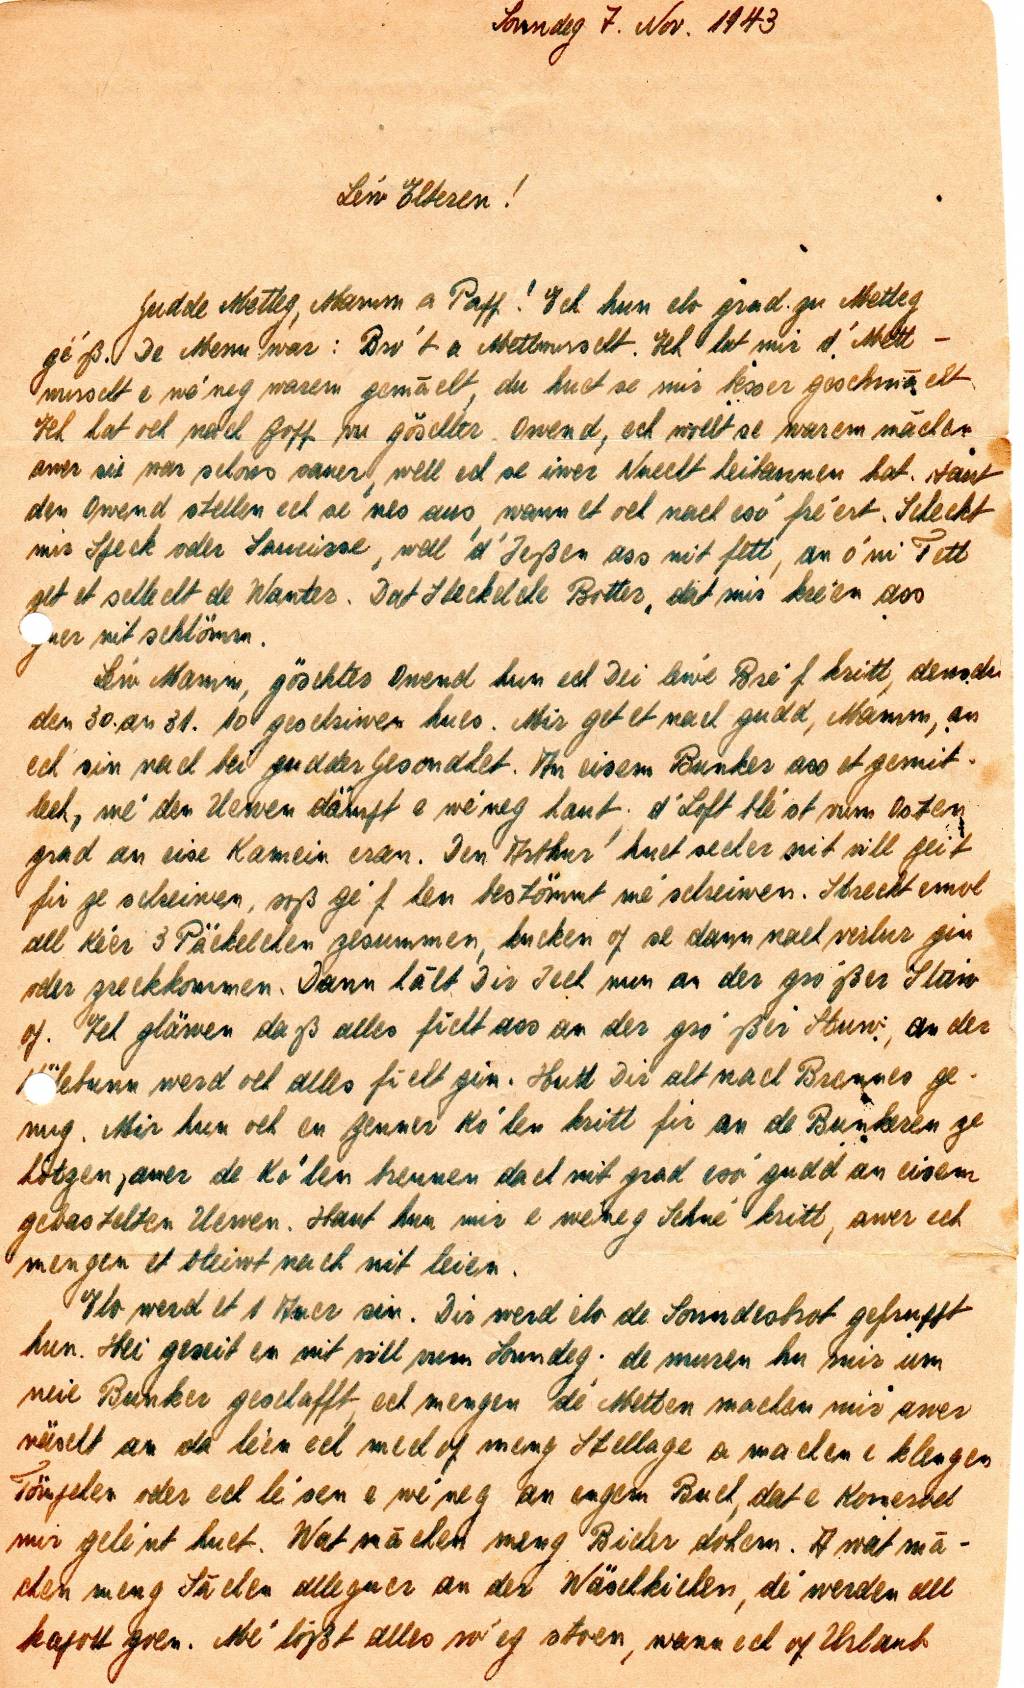 Sonndeg 7. Nov. 1943
Léiw Elteren!
Gudde Metteg, Mamm a Papp! Ech hun elo grad zu Metteg
gé ß. De Menu war: Bro't a Mettwurscht. Ech hat mir d'Mett-
wurscht e wé'neg warem gemācht, du huet se mir besser geschmācht.
Ech hat och nach Zopp vu göschter Owend, ech wollt se warem māchen
awer sie war schons sauer, well ech se iwer Nuecht leibannen hat. Haut
den Owend stellen ech se' nes aus, wann et och nach eso' fre'ert. Scheckt
mir Speck oder Saucisse, well d'Ießen ass nit fett, an o'ni Fett
get et schlecht de Wanter. Dat Steckelche Botter, dat mir kréien ass
guer nit schlömm.
Léiw Mamm, göschter Owend hun ech Dei léiwe Bré f kritt, dens du
den 30. an 31. 10 geschriwen hues. Mir get et nach gudd, Mamm, an
ech sin nach bei gudder Gesondhet. An eisem Bunker ass et gemit-
lech, mé den Uewen dämpft e wé'neg haut. d'Loft blé'st vum Osten
grad an eise Kamein eran. Den Arthur huet secher nit vill zeit
fir ze schreiwen, soß gé'f hen bestömmt mé schreiwen. Schreckt emol
all Kéier 3 Päckelchen zesummen, kucken of se dann nach verluer gin
oder zreckkommen. Dann hält Dir Iech nun an der gro'ßer Stuw
of. Ech gläwen daß alles ficht ass an der gro'ßer Stuw, an der
werd och alles ficht gin. Hutt Dir alt nach Brennes ge-
nug. Mir hun och en Zenner Ko'len kritt fir an de Bunkeren ze
hötzen, awer de Ko'len brennen dach nit grad eso' gudd an eisem
gebastelten Uewen. Haut hun mir e wé'neg Schné kritt, awer ech
mengen et bleiwt nach nit leien.
Elo werd et 1 Auer sin. Dir werd elo de Sonndesbrot gefrupft
hun. Hei geseit en nit vill vum Sonndeg. de muren hu mir um
neie Bunker geschafft, ech mengen de' Metten machen mir awer
näischt an da léen ech mech op meng Stellage a machen e klengen
Tömpchen oder ech lé'sen e wé'neg an engem Buch, dat e Komerod
mir geléint huet. Wat māchen meng Bicher dohem. A wat mā-
chen meng Sāchen alleguer an der Wäschkichen, dé werden all
kapott goen. Mé lößt alles ro'eg stoen, wann ech op Urlaub